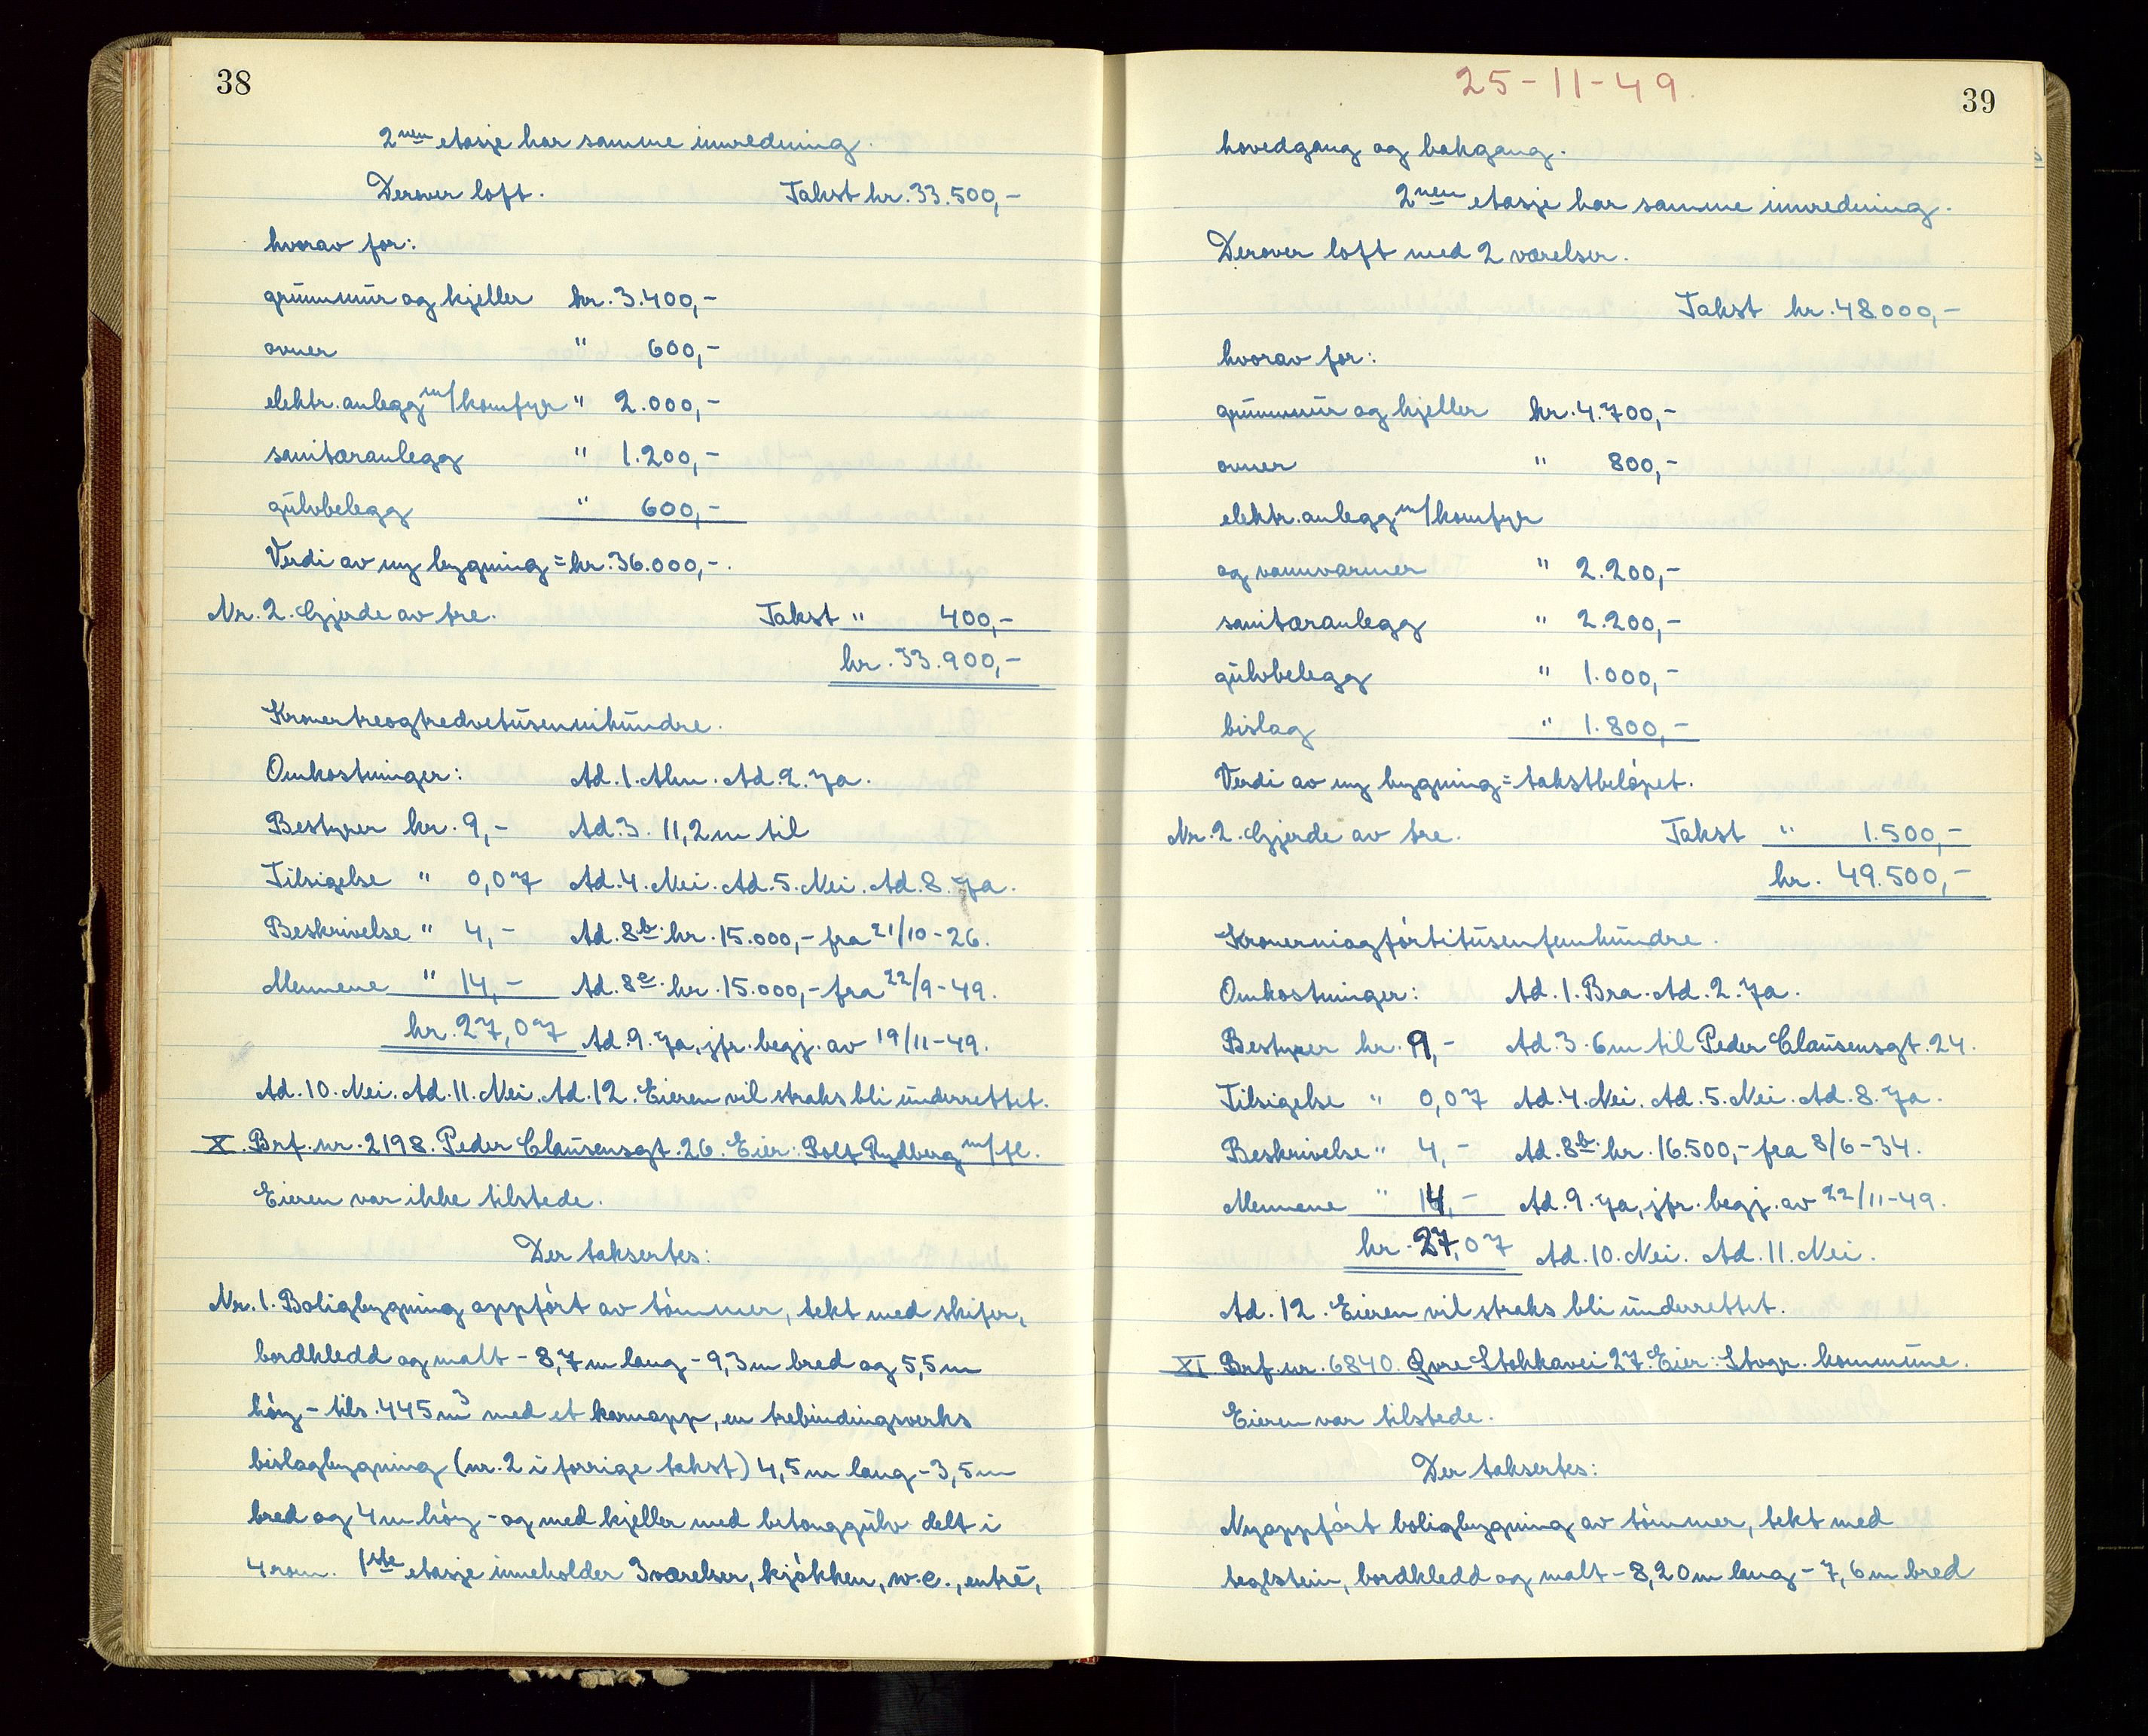 38
2nen etasje har samme innredning.
Derover loft. Takst kr. 33.500,-
hvorav for:
grunnmur og kjeller kr. 3.400,-
ovner " 600,-
elektr. anlegg m/komfyr " 2.000,-
sanitæranlegg " 1.200,-
gulvbelegg " 600,-
Verdi av ny bygning = kr. 36.000,-.
Nr. 2. Gjerde av tre. Takst " 400,-
kr. 33.900,-
Kronertreogtredvetusennihundre.
Omkostninger: Ad. 1. Alm. Ad. 2. Ja.
Bestyrer kr. 9,- Ad. 3. 11,2 m til
Tilsigelse " 0,07 Ad. 4. Nei. Ad. 5. Nei. Ad. 8. Ja.
Beskrivelse " 4,- Ad. 8b. kr. 15.000,- fra 21/10-26.
Mennene " 14,- Ad. 8e. kr. 15.000,- fra 22/9-49.
kr. 27,07 Ad. 9. Ja, jfr. begj. av 19/11-49.
Ad. 10. Nei. Ad. 11. Nei. Ad. 12. Eieren vil straks bli underrettet.
X. Brf. nr. 2198. Peder Clausensgt. 26. Eier: Rolf Rydberg m/fl.
Eieren var ikke tilstede.
Der taksertes:
Nr. 1. Boligbygning oppført av tømmer, tekt med skifer,
bordkledd og malt - 8,7 m lang - 9,3 m bred og 5,5 m
høy - tils. 445 m3 med et karnapp, en trebindingsverks
bislagbygning (nr. 2 i forrige takst) 4,5 m lang - 3,5 m
bred og 4 m høy - og med kjeller med betonggulv delt i
4 rom. 1ste etasje inneholder 3 værelser, kjøkken, w.c., entré,
25-11-49.
39
hovedgang og bakgang.
2nen etasje har samme innredning.
Derover loft med 2 værelser.
Takst kr. 48.000,-
hvorav for:
grunnmur og kjeller kr. 4.700,-
ovner " 800,-
elektr. anlegg m/komfyr
og vannvarmer " 2.200,-
sanitæranlegg " 2.200,-
gulvbelegg " 1.000,-
bislag " 1.800,-
Verdi av ny bygning = takstbeløpet.
Nr. 2. Gjerde av tre. Takst " 1.500,-
kr. 49.500,-
Kronerniogførtitusenfemhundre.
Omkostninger: Ad. 1. Bra. Ad. 2. Ja.
Bestyrer kr. 9,- Ad. 3. 6 m til Peder Clausensgt. 24.
Tilsigelse " 0,07 Ad. 4. Nei. Ad. 5. Nei. Ad. 8. Ja.
Beskrivelse " 4,- Ad. 8b. kr. 16.500,- fra 8/6-34.
Mennene " 14,- Ad. 9. Ja, jfr. begj. av 22/11-49.
kr. 27,07 Ad. 10. Nei. Ad. 11. Nei.
Ad. 12. Eieren vil straks bli underrettet.
XI. Brf. nr. 6840. Øvre Stokkavei 27. Eier: Stvgr. kommune.
Eieren var tilstede.
Der taksertes:
Nyoppført boligbygning av tømmer, tekt med
teglstein, bordkledd og malt - 8,20 m lang - 7,6 m bred